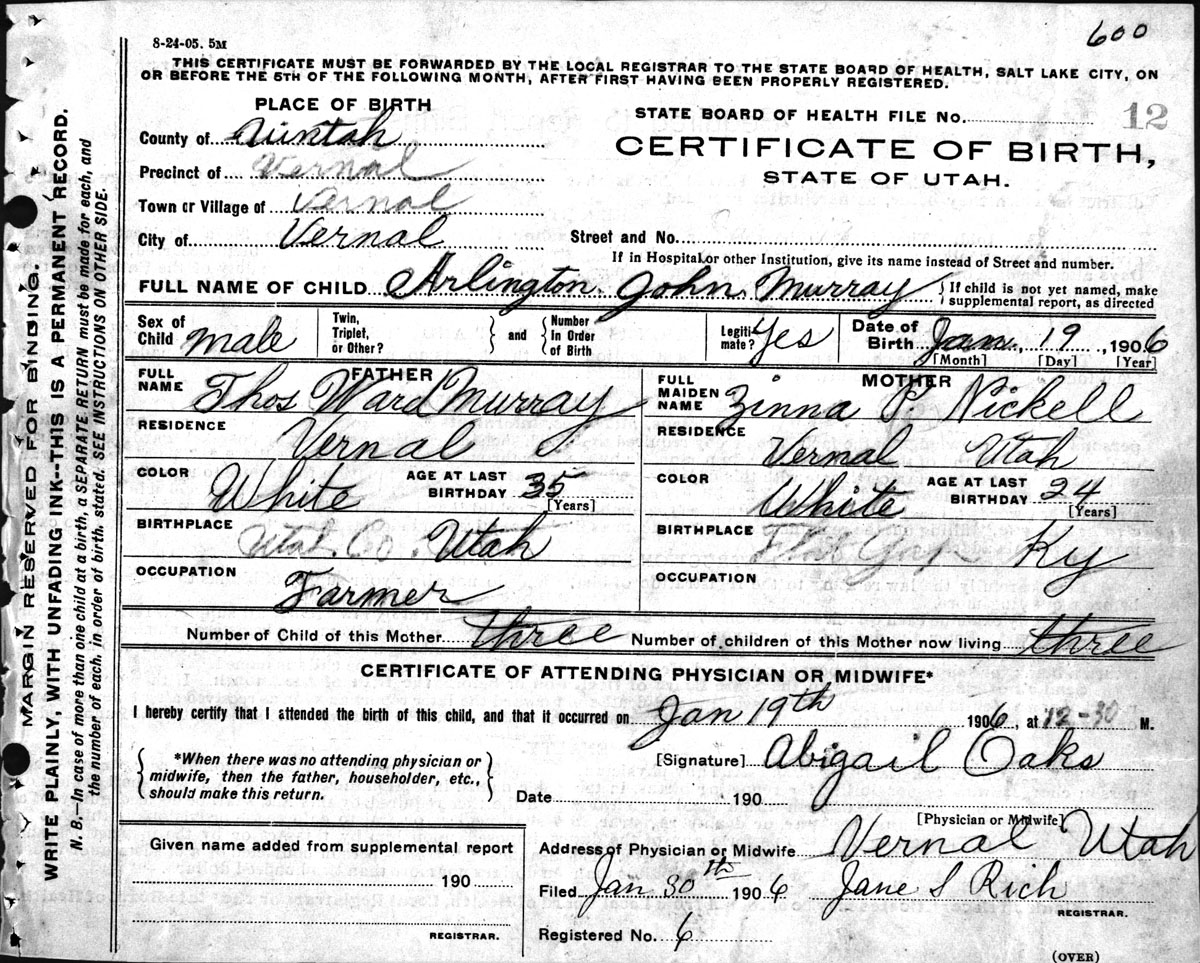 600
8-24-05. 5M
THIS CERTIFICATE MUST BE FORWARDED BY THE LOCAL REGISTRAR TO THE STATE BOARD OF HEALTH, SALT LAKE CITY, ON
OR BEFORE THE 5TH OF THE FOLLOWING MONTH, AFTER FIRST HAVING BEEN PROPERLY REGISTERED.
PLACE OF BIRTH
STATE BOARD OF HEALTH FILE No. 12
County of Uintah
CERTIFICATE OF BIRTH,
Precinct of Vernal
STATE OF UTAH.
Town or Village of Vernal
City of Vernal Street and No.
If in Hospital or other Institution, give its name instead of Street and number.
FULL NAME OF CHILD Arlington John Murray { If child is not yet named, make
supplemental report, as directed
Sex of Child male Twin, Triplet, or Other? } and { Number in Order of Birth Legitimate? Yes Date of Birth Jan. 19, 1906
[Month] [Day] [Year]
FATHER MOTHER
FULL NAME Thos Ward Murray FULL MAIDEN NAME Zinna P. Nickell
RESIDENCE Vernal RESIDENCE Vernal Utah
COLOR White AGE AT LAST BIRTHDAY 35 [Years] COLOR White AGE AT LAST BIRTHDAY 24 [Years]
BIRTHPLACE Utah Co. Utah BIRTHPLACE Flat Gap Ky
OCCUPATION Farmer OCCUPATION
Number of Child of this Mother three Number of children of this Mother now living three
CERTIFICATE OF ATTENDING PHYSICIAN OR MIDWIFE*
I hereby certify that I attended the birth of this child, and that it occurred on Jan 19th 1906, at 12-30 M.
{ *When there was no attending physician or
midwife, then the father, householder, etc.,
should make this return. }
[Signature] Abigail Oaks
Date 190
[Physician or Midwife]
Given name added from supplemental report
190
REGISTRAR.
Address of Physician or Midwife Vernal Utah
Filed Jan 30th 1906 Jane S Rich
REGISTRAR.
Registered No. 6
(OVER)
MARGIN RESERVED FOR BINDING.
WRITE PLAINLY, WITH UNFADING INK--THIS IS A PERMANENT RECORD.
N. B.—In case of more than one child at a birth, a SEPARATE RETURN must be made for each, and
the number of each, in order of birth, stated. SEE INSTRUCTIONS ON OTHER SIDE.